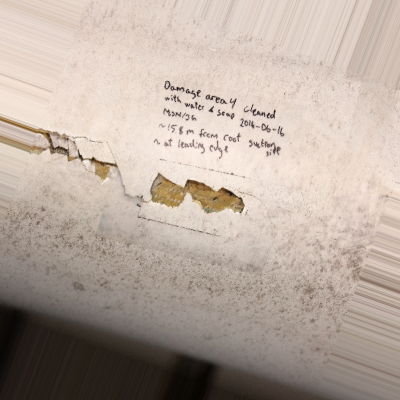 Damage area 4 cleaned
with water & soap 2016-06-16
~ 15.8 m from root suctionside
~ at leading edge